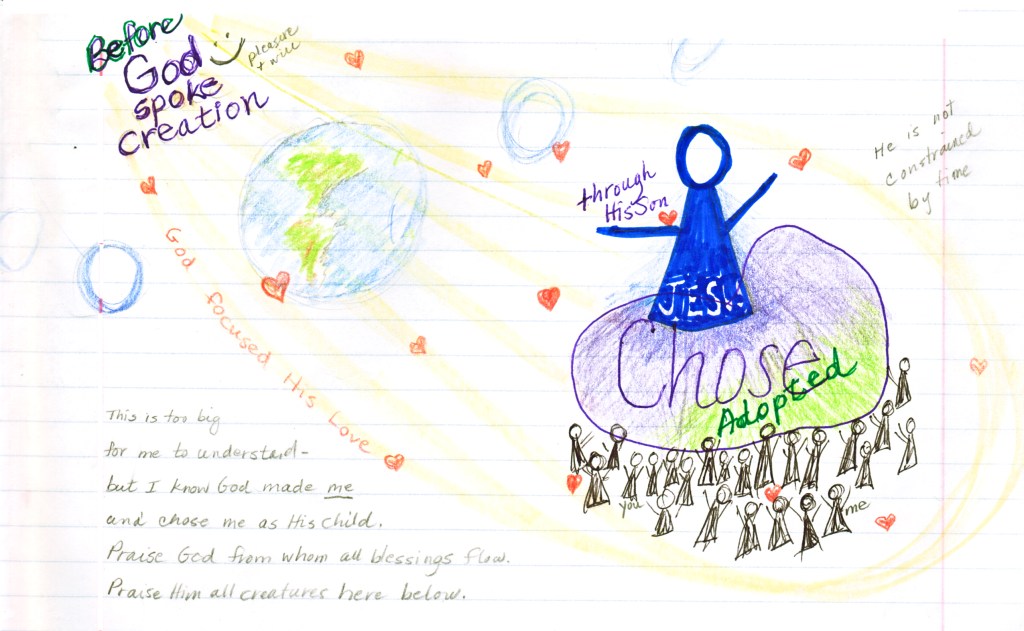 Before
God
spoke
creation
pleasure
+ will
through
His Son
He is not
constrained
by time
God focused His Love
JESUS
Chose
Adopted
you
me
This is too big
for me to understand-
but I know God made me
and chose me as His child.
Praise God from whom all blessings flow.
Praise Him all creatures here below.